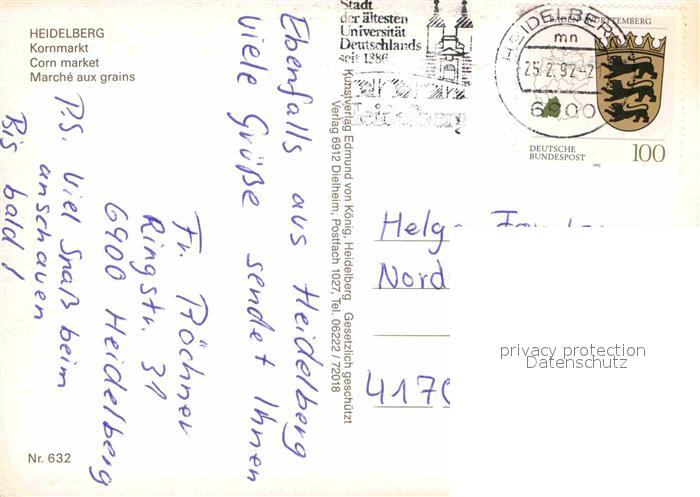 HEIDELBERG
Kornmarkt
Corn market
Marché aux grains
Ebenfalls aus Heidelberg
viele Grüße sendet Ihnen
Fr. Röchner
Ringstr. 31
6900 Heidelberg
P.S. Viel Spaß beim
anschauen
Bis bald!
Nr. 632
Kunstverlag Edmund von König, Heidelberg Gesetzlich geschützt
Verlag 6912 Dielheim, Postfach 1027, Tel. 06222 / 72018
Stadt
der ältesten
Universität
Deutschlands
seit 1386
Heidelberg
HEIDELBERG
mn
25.2.92
6900
BADEN-WÜRTTEMBERG
DEUTSCHE
BUNDESPOST
1992
100
Helg
Nord
4170
privacy protection
Datenschutz